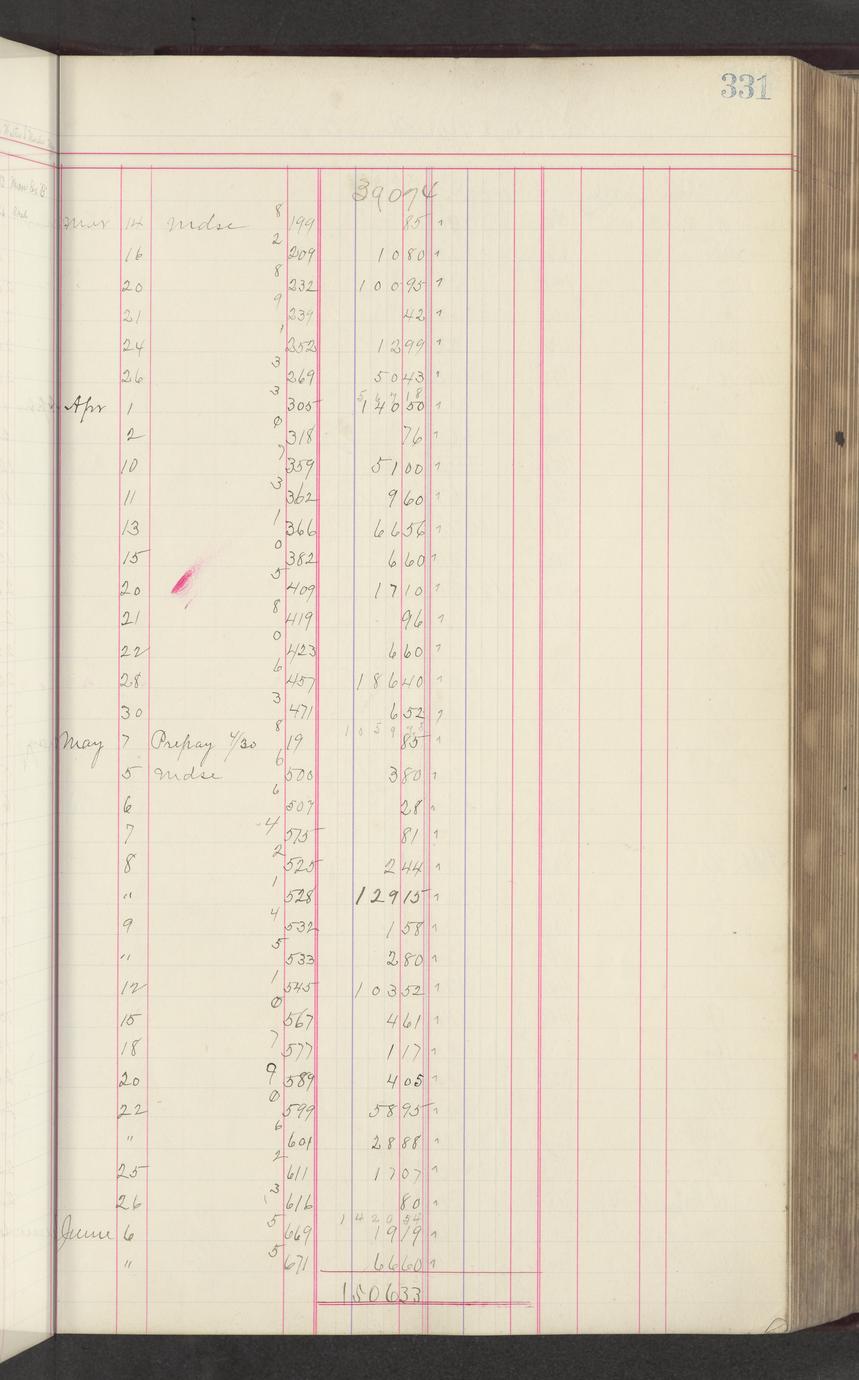 331
39074
Mar 14 Mdse 8 199 85
16 2 209 10 80
20 8 232 100 95
21 9 239 42
24 1 252 12 99
26 3 269 50 43
Apr 1 3 305 140 50
2 0 318 76
10 7 359 51 00
11 3 362 9 60
13 1 366 66 56
15 0 382 6 60
20 5 409 17 10
21 8 419 96
22 0 423 6 60
28 6 457 186 40
30 3 471 6 52
1059 73
May 7 Prepay 4/30 8 19 85
5 Mdse 6 500 3 80
6 6 507 28
7 4 515 81
8 2 525 2 44
" 1 528 129 15
9 4 532 1 58
" 5 533 2 80
12 1 545 103 52
15 0 567 4 61
18 7 577 1 17
20 9 589 4 05
22 0 599 58 95
" 6 601 28 88
25 2 611 17 07
26 3 616 80
1420 54
June 6 5 669 19 19
" 5 671 66 60
1506 33